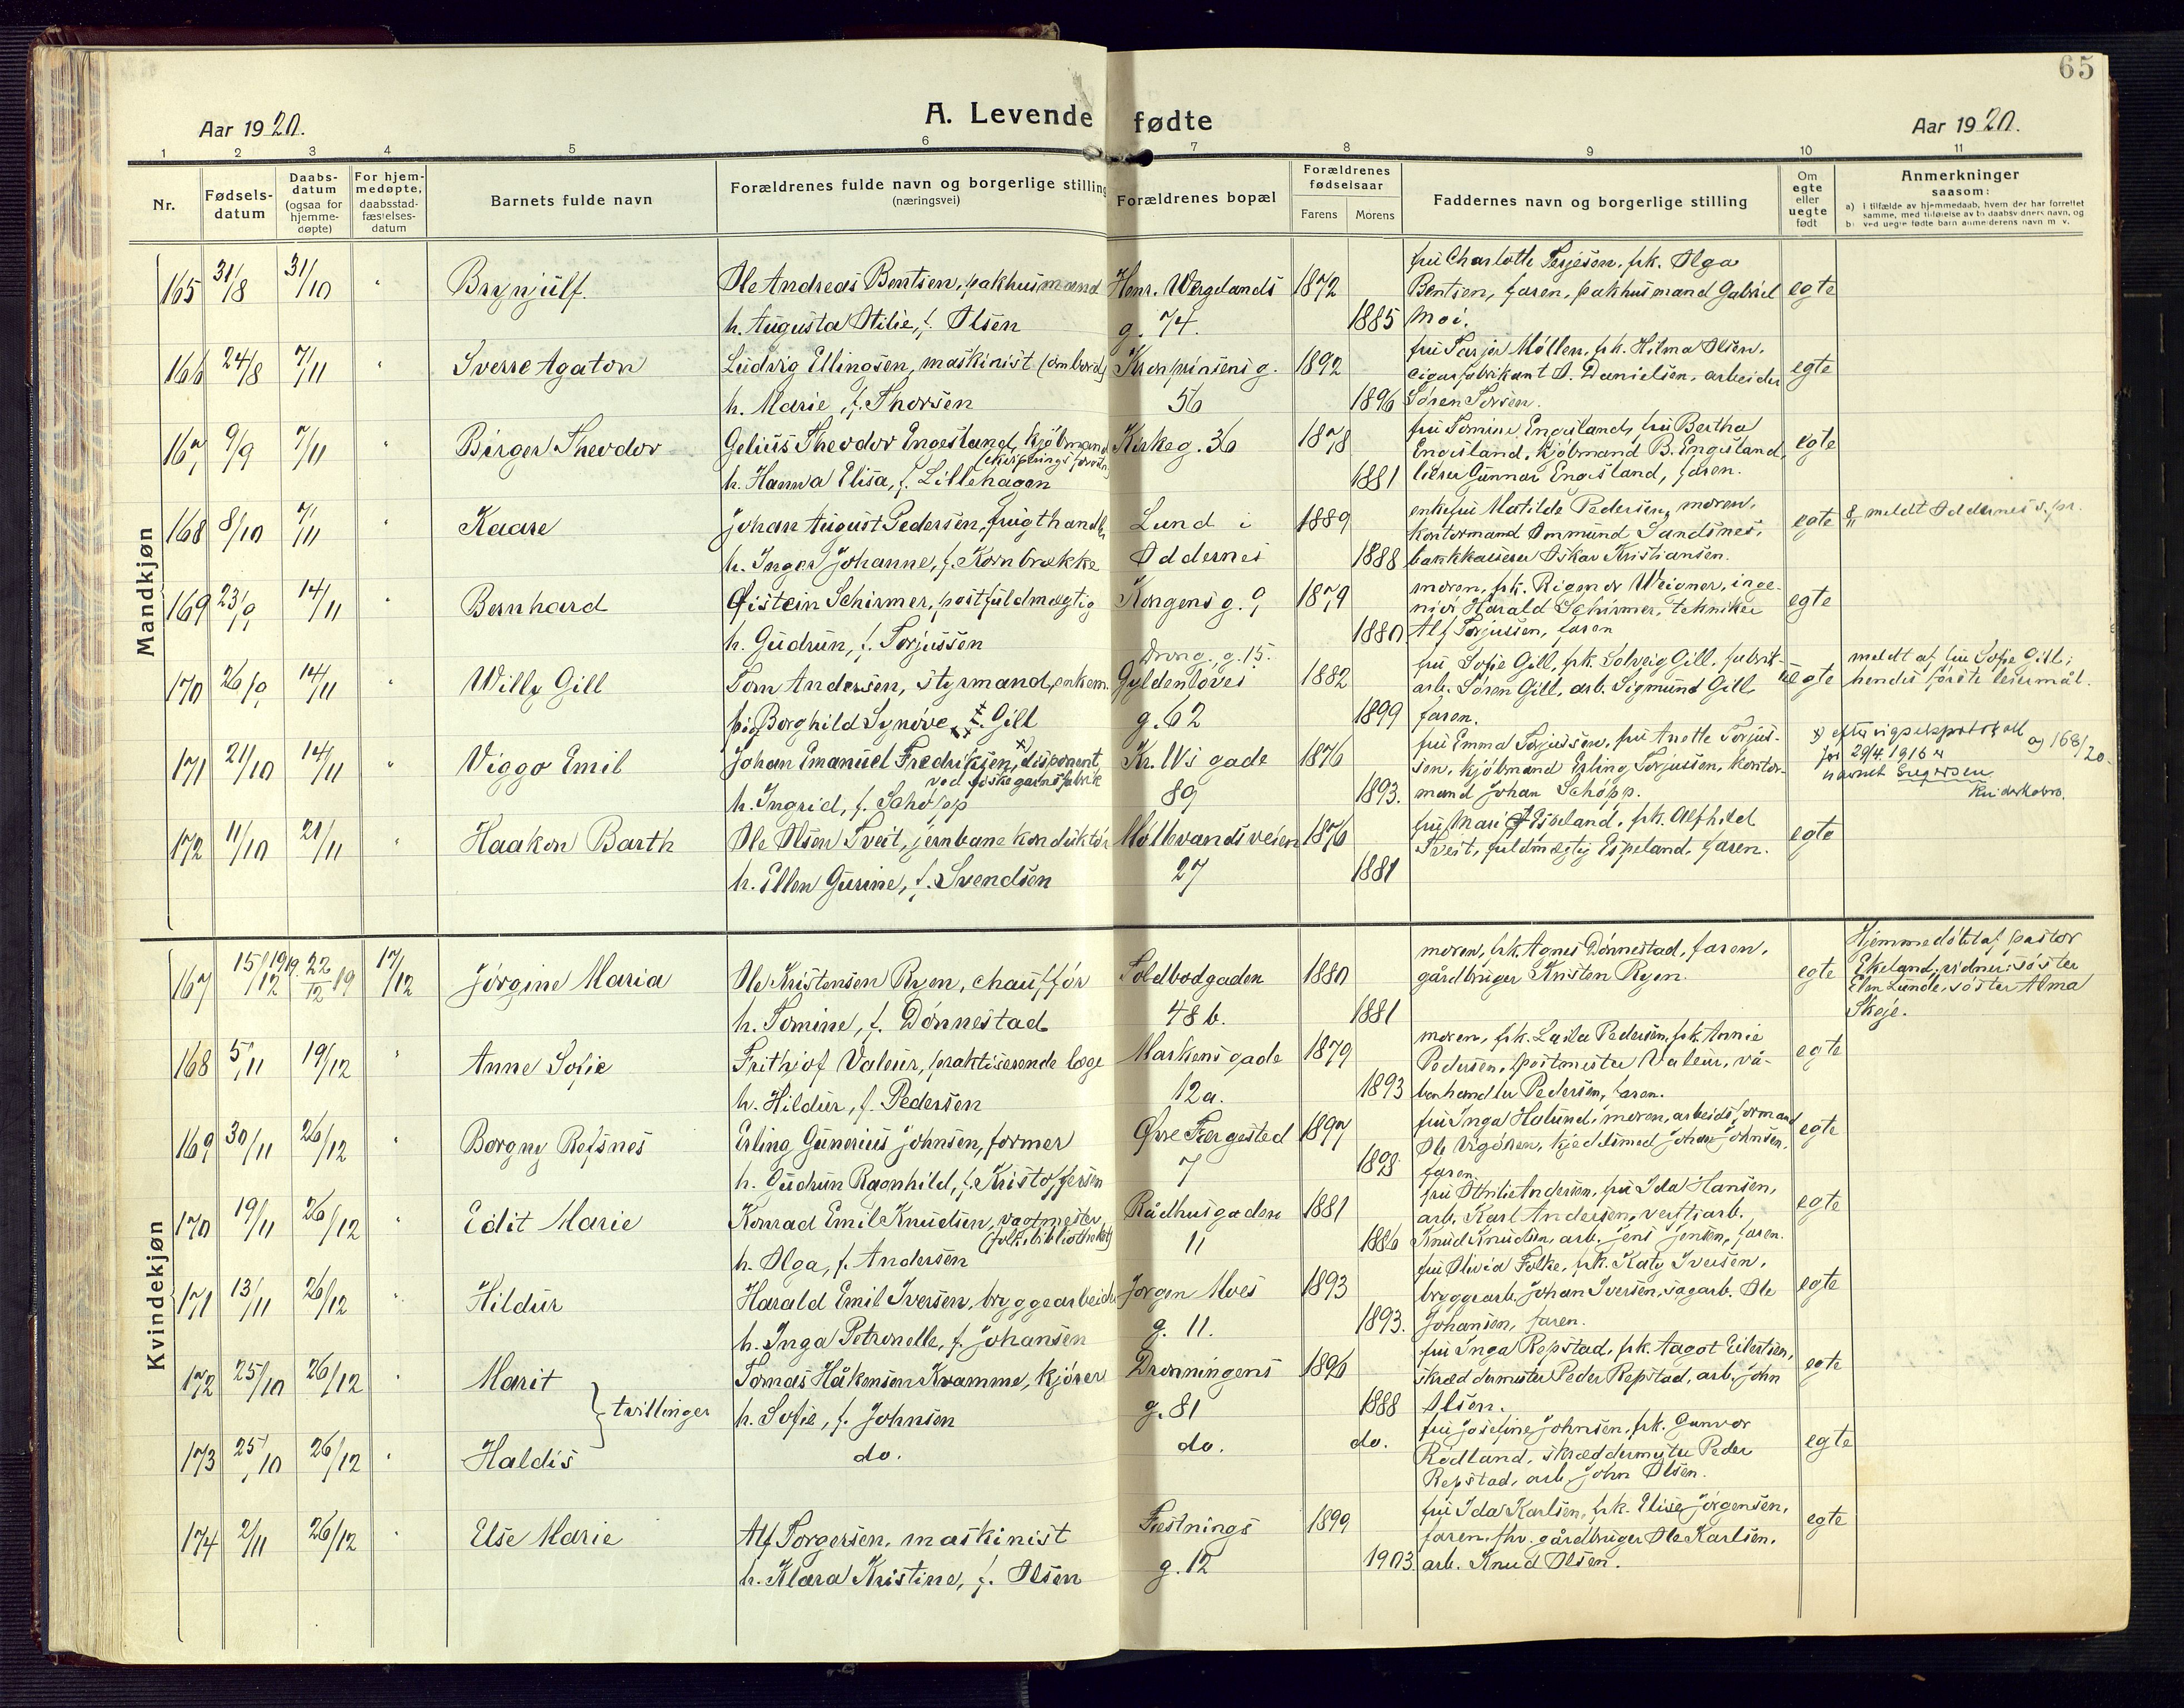 65
Aar 1920.
A. Levende fødte
Aar 1920.
1 2 3 4 5 6 7 8 9 10 11
Nr.
Fødsels-
datum
Daabs-
datum
(ogsaa for
hjemme-
døpte)
For hjem-
medøpte,
daabsstad-
fæstelses-
datum
Barnets fulde navn
Forældrenes fulde navn og borgerlige stilling
(næringsvei)
Forældrenes bopæl
Forældrenes
fødselsaar
Farens Morens
Faddernes navn og borgerlige stilling
Om
egte
eller
uegte
født
Anmerkninger
saasom:
a) i tilfælde av hjemmedaab, hvem der har forrettet
samme, med tilføielse av to daabsvidners navn, og
b) ved uegte fødte barn anmelderens navn m. v.
Mandkjøn
165 31/8 31/10 " Brynjülf.
Ole Andreas Bentsen, pakhusmand
h. Augusta Otilie, f. Olsen
Henr. Wergelands
g. 74.
1872
1885
frü Charlotte Terjesen, frk. Olga
Bentsen, faren, pakhusmand Gabriel
Moi.
egte
166 24/8 7/11 " Sverre Agaton
Ludvig Ellingsen, maskinist (ombord)
h. Marie, f. Thorsen
Kronprinsens g.
56
1892
1896
Møller, frk. Hilma Olsen,
cigarfabrikant O. Danielsen, arbeider
Søren
egte
167 9/9 7/11 " Birger Theodor
Gelius Theodor Engesland, kjøbmand
h. Hanna Elisa, f. Lillehagen
Kirkeg. 36
1878
1881
frü Tomine Engesland, frü Bertha
Engesland, kjøbmand B. Engesland,
Gunnar Engesland, faren.
egte
168 8/10 7/11 " Kaare
Johan August Pedersen, frugthandl.
h. Inger Johanne, f. Kornbrække
Lund i
Oddernes
1889
1888
enkefrü Matilde Pedersen, moren,
kontormand Ommund Sandsnes,
bankkasserer Oskar Kristiansen.
egte
8/11 meldt Oddernes s.pr.
169 23/9 14/11 " Bernhard
Øistein Schirmer, postfuldmægtig
h. Gudrun, f. Torjussen
Kongens g. 9
1879
1880
moren, frk. Rigmor Weigner, inge-
niør Harald Schirmer, tekniker
Alf Torjussen, faren
egte
170 26/9 14/11 " Willy Gill
Tom Andersen, styrmand, enkem.
pig. Borghild Synøve Gill
Drong. g. 15.
Gyldenløves
g. 62
1882
1899
frü Sofie Gill, frk. Solveig Gill, fabrik-
arb. Søren Gill, arb. Sigmund Gill
faren.
uegte
meldt af frü Sofie Gill;
hendes første leiermål.
171 21/10 14/11 " Viggo Emil
Johan Emanuel Fredriksen, x) disponent
ved fiskegarnsfabrik
h. Ingrid, f. Schøpp
Kr. IVs gade
89
1876
1893.
frü Emma Torjussen, frü Anette Torjus-
sen, kjøbmand Erling Torjussen, kontor-
mand Johan Schøpp.
x) efter vigselsprotokoll
for 29/4 1916 og 168/20
navnet
172 11/10 21/11 " Haakon Barth
Ole Olsen Tveit, jernbanekonduktør
h. Ellen Gurine, f. Svendsen
Møllevandsveien
27
1876
1881
frü Marie Espeland, frk. Alfhild
Tveit, fuldmægtig Espeland, faren.
egte
Kvindekjøn
167 15/12 1919. 22/12 19 17/12 Jørgine Maria
Ole Kristensen Ryen, chauffør
h. Tomine, f. Dønnestad
Toldbodgaden
48 b.
1880
1881
moren, frk. Agnes Dønnestad, faren,
gårdbruger Kristen Ryen.
egte
Hjemmedøbt af pastor
Ekeland; vidner: søster
Elen Lunde, søster Alma
Skeje.
168 5/11 19/12 " Anne Sofie
Frithjof Valeur, praktiserende læge
h. Hildur, f. Pedersen
Markensgade
12a.
1879
1893
moren, frk. Laila Pedersen, frk. Annie
Pedersen, postmester Valeur, vå-
benhandler Pedersen, faren.
egte
169 30/11 26/12 " Borgny Refsnes
Erling Gunerius Johnsen, former
h. Gudrun Ragnhild, f. Kristoffersen
Øvre Færgested
7
1897
1898
frü Inga Høiund, moren, arbeidsformand
Ole Urgören, kjedelsmed Johan Johnsen,
faren
egte
170 19/11 26/12 " Edit Marie
Konrad Emil Knudsen, vagtmester
(folkebibliotheket)
h. Olga, f. Andersen
Rådhusgaden
11
1881
1886
frü Othilie Andersen, frü Ida Hansen,
arb. Karl Andersen, verftsarb.
Knud Knudsen, arb. Jens Jensen, faren.
egte
171 13/11 26/12 " Hildur
Harald Emil Iversen, bryggearbeider
h. Inga Petronelle, f. Johansen
Jørgen Moes
g. 11.
1893
1893.
frü Olivia Falke, frk. Katy Iversen,
bryggearb. Johan Iversen, sagarb. Ole
Johansen, faren.
egte
172 25/10 26/12 " Marit
tvillinger
Tomas Håkensen Kvamme, kjører
h. Sofie, f. Johnsen
Dronningens
g. 81
1896
1888
frü Inga Repstad, frk. Aagot Eilertsen,
skræddermester Peder Repstad, arb. John
Olsen.
egte
173 25/10 26/12 " Haldis
do.
do.
do.
frü Josefine Johnsen, frk. Gunvor
Rødland, skræddermester Peder
Repstad, arb. John Olsen.
egte
174 2/11 26/12 " Else Marie
Alf Torgersen, maskinist
h. Klara Kristine, f. Olsen
Fæstnings
g. 12
1899
1903.
frü Ida Karlsen, frk. Elise Jørgensen,
faren, fhv. gårdbruger Ole Karlsen,
arb. Knud Olsen.
egte